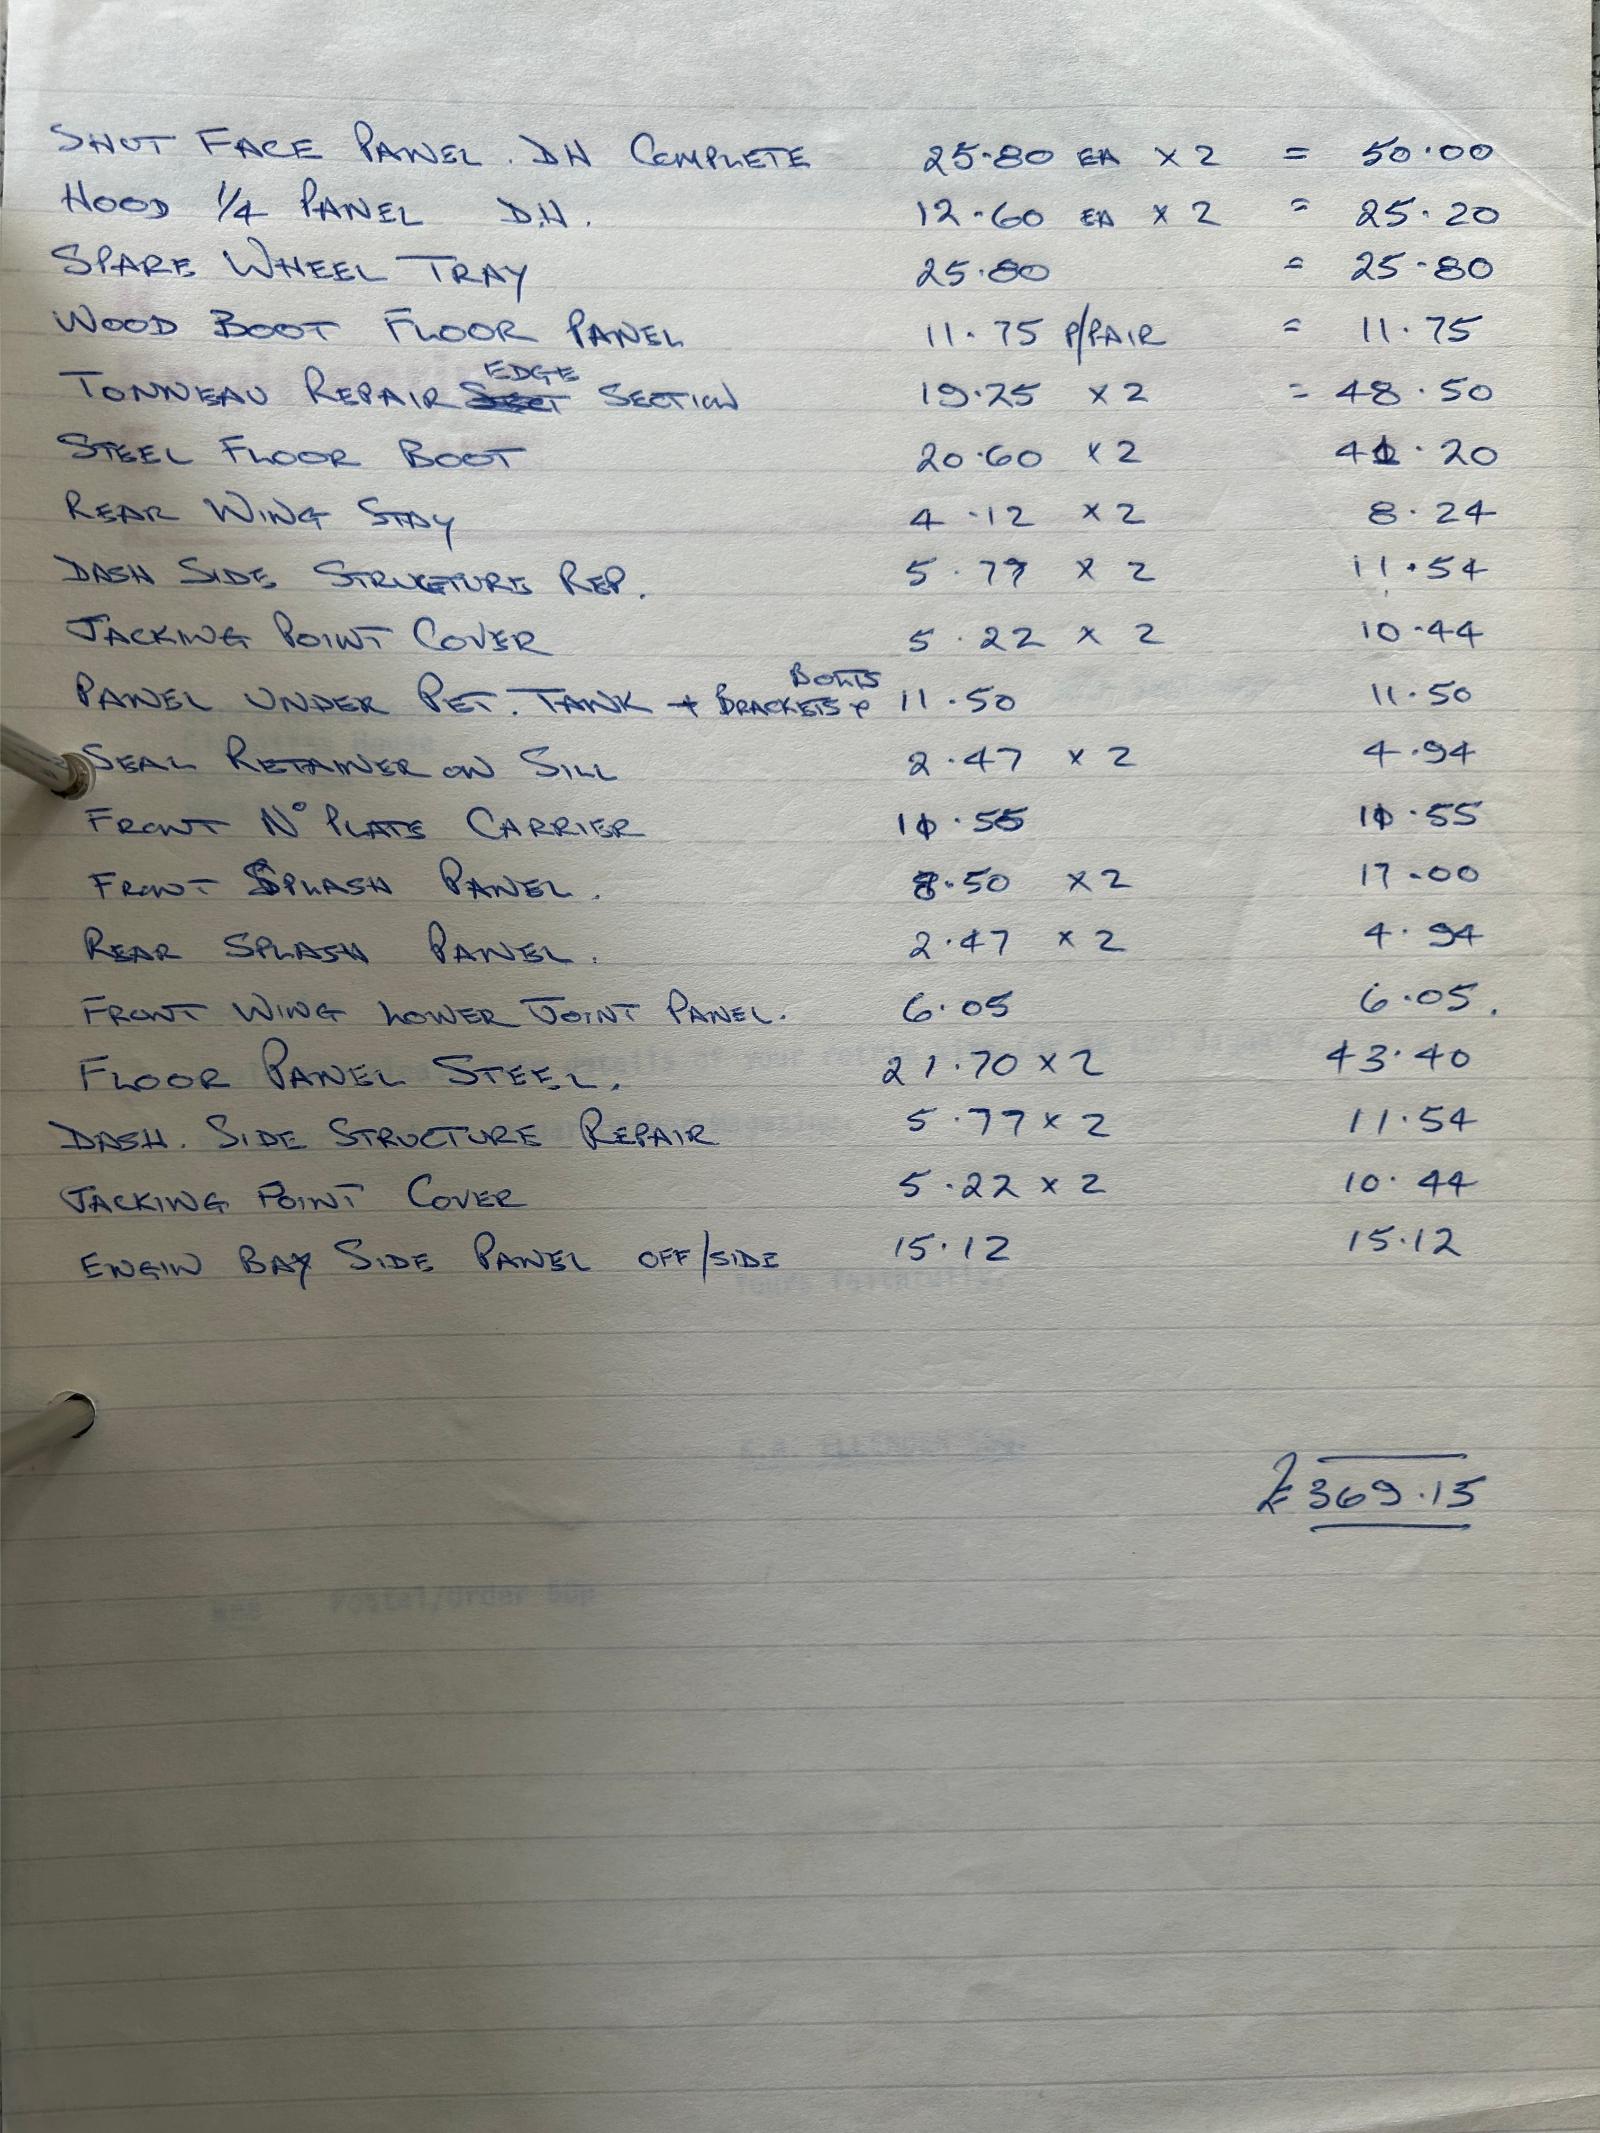 SHUT FACE PANEL . DH COMPLETE 25.80 EA x 2 = 50.00
HOOD 1/4 PANEL D.H. 12.60 EA x 2 = 25.20
SPARE WHEEL TRAY 25.80 = 25.80
WOOD BOOT FLOOR PANEL 11.75 P/PAIR = 11.75
TONNEAU REPAIR EDGE SECTION 19.25 x 2 = 48.50
STEEL FLOOR BOOT 20.60 x 2 41.20
REAR WING STAY 4.12 x 2 8.24
DASH SIDE STRUCTURE REP. 5.77 x 2 11.54
JACKING POINT COVER 5.22 x 2 10.44
PANEL UNDER PET. TANK + BRACKETS & BOLTS 11.50 11.50
SEAL RETAINER ON SILL 2.47 x 2 4.94
FRONT No PLATE CARRIER 11.55 11.55
FRONT SPLASH PANEL. 8.50 x 2 17.00
REAR SPLASH PANEL. 2.47 x 2 4.94
FRONT WING LOWER JOINT PANEL. 6.05 6.05.
FLOOR PANEL STEEL. 21.70 x 2 43.40
DASH. SIDE STRUCTURE REPAIR 5.77 x 2 11.54
JACKING POINT COVER 5.22 x 2 10.44
ENGIN BAY SIDE PANEL OFF/SIDE 15.12 15.12
£369.15